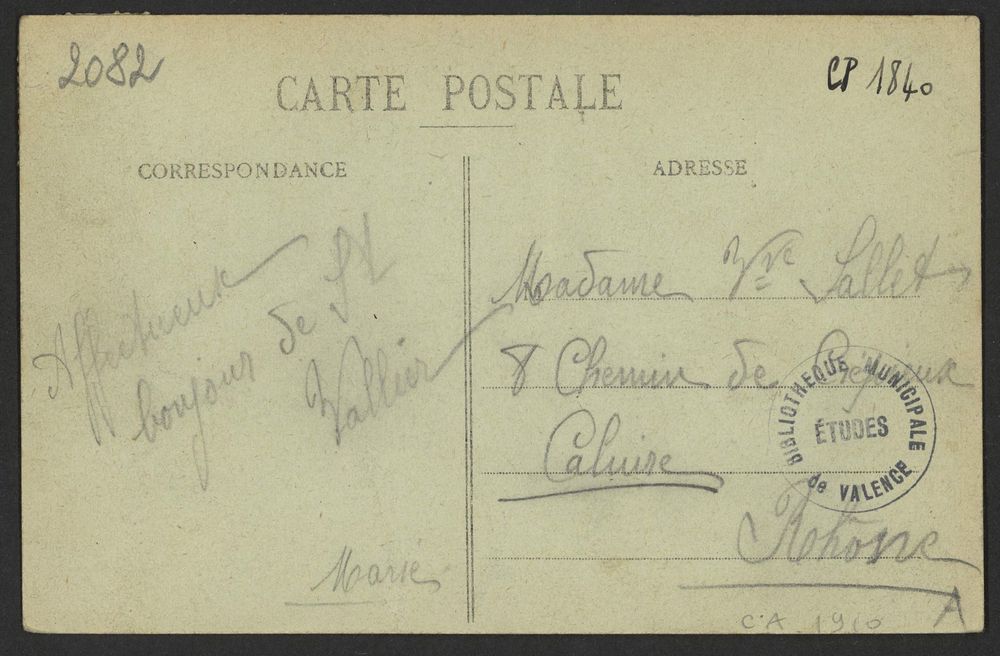 2082
CP 1840
CARTE POSTALE
CORRESPONDANCE
Affectueux
bonjour de St
Vallier
Marie
ADRESSE
Madame Vve Sallet
8 Chemin de
Caluire
Rhône
BIBLIOTHEQUE MUNICIPALE
ÉTUDES
de VALENCE
CA 1910
A